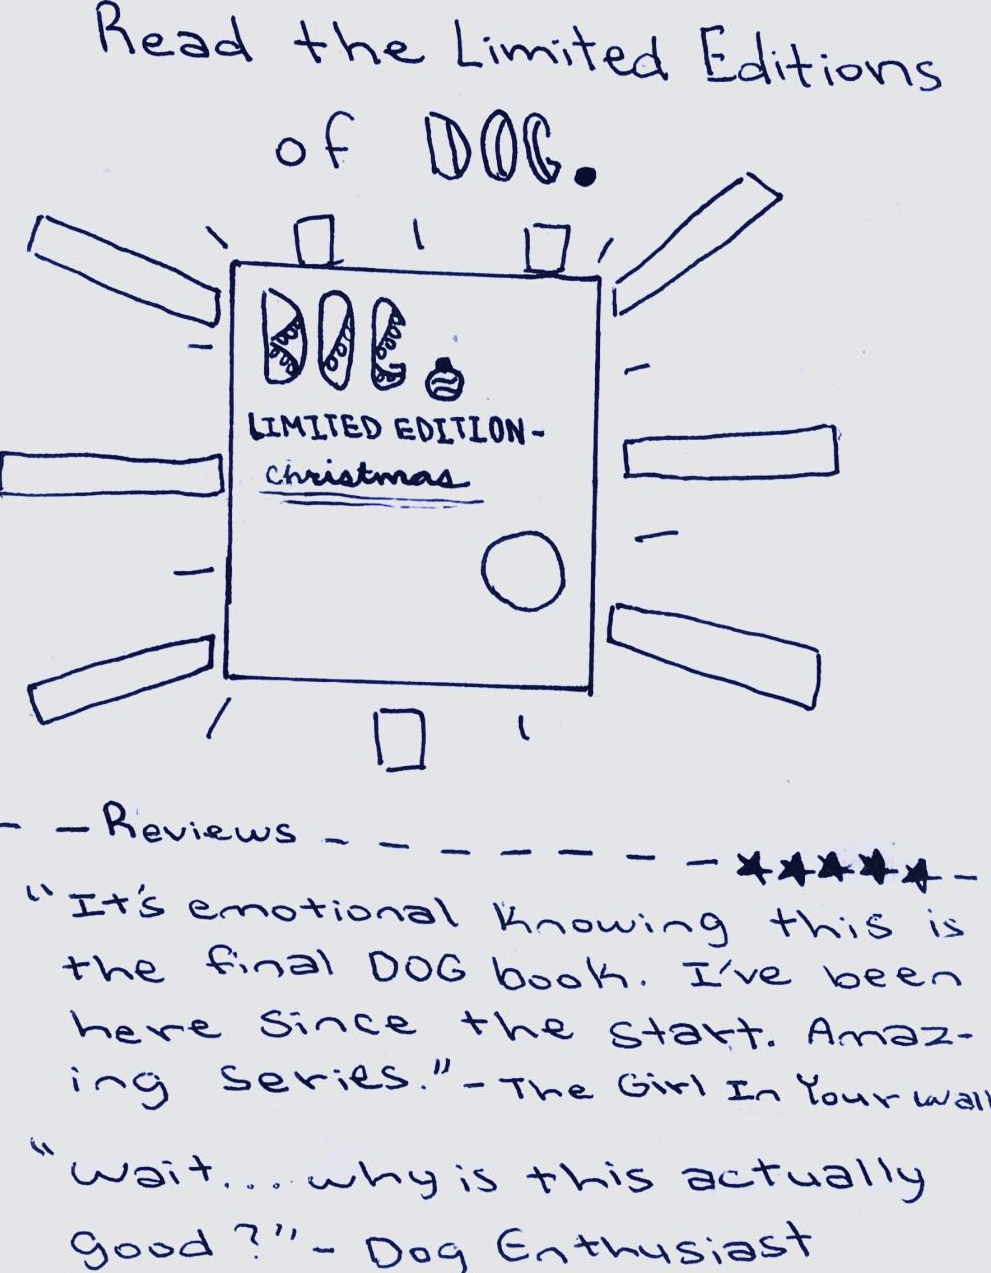 Read the Limited Editions
of DOG.
DOG.
LIMITED EDITION-
christmas
Reviews
"It's emotional knowing this is
the final DOG book. I've been
here since the start. Amaz-
ing series." - The Girl In Your Wall
"Wait... why is this actually
good?" - Dog Enthusiast